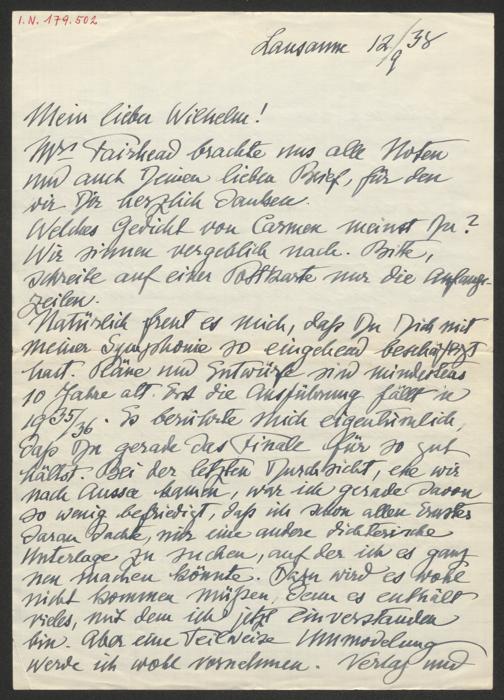 I.N. 179.502
Lausanne 12/9 38
Mein lieber Wilhelm!
Mrs Fairhead brachte uns alle Noten
und auch Deinen lieben Brief, für den
wir Dir herzlich danken.
Welches Gedicht von Carmen meinst Du?
Wir sinnen vergeblich nach. Bitte,
schreibe auf einer Postkarte nur die Anfangs-
zeilen.
Natürlich freut es mich, daß Du Dich mit
meiner Symphonie so eingehend beschäftigt
hast. Pläne und Entwürfe sind mindestens
10 Jahre alt. Erst die Ausführung fällt in
1935/36. Es berührte mich eigentümlich,
daß Du gerade das Finale für so gut
hältst. Bei der letzten Durchsicht, ehe wir
nach Aussee kamen, war ich gerade davon
so wenig befriedigt, daß ich schon allen Ernstes
daran dachte, mir eine andere dichterische
Unterlage zu suchen, auf der ich es ganz
neu machen könnte. Dazu wird es wohl
nicht kommen müßen, denn es enthält
vieles, mit dem ich jetzt einverstanden
bin. Aber eine teilweise Ummodelung
werde ich wohl vornehmen. Verlag und